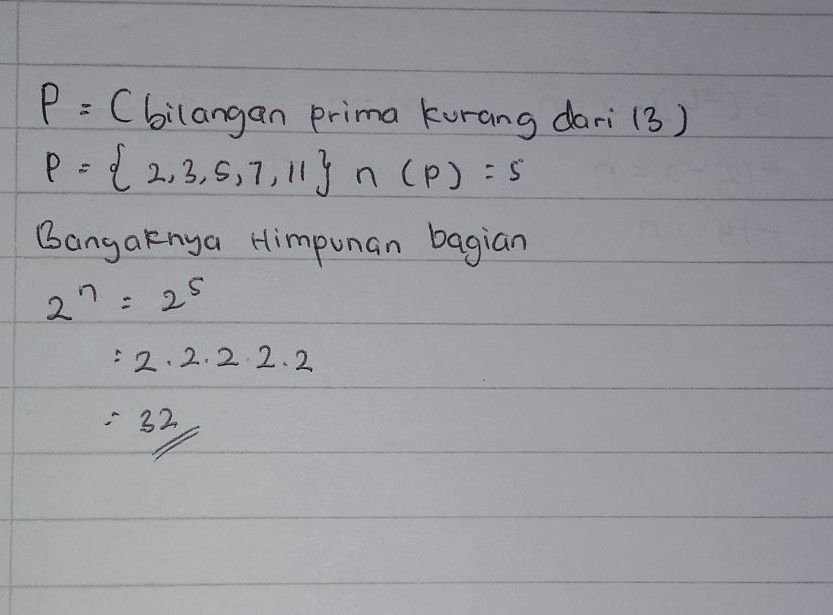 P = (bilangan prima kurang dari 13)
P = { 2,3,5,7,11} n (P) = 5
Bangaknya Himpunan bagian
2ⁿ = 2⁵
= 2.2.2.2.2
= 32